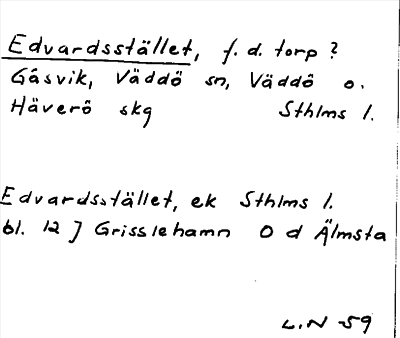 Edvardsstället, f. d. torp ?
Gåsvik, Väddö sn, Väddö o.
Häverö skg Sthlms l.
Edvardsstället, ek Sthlms l.
bl. 12 J Grisslehamn O d Älmsta
L.N -59